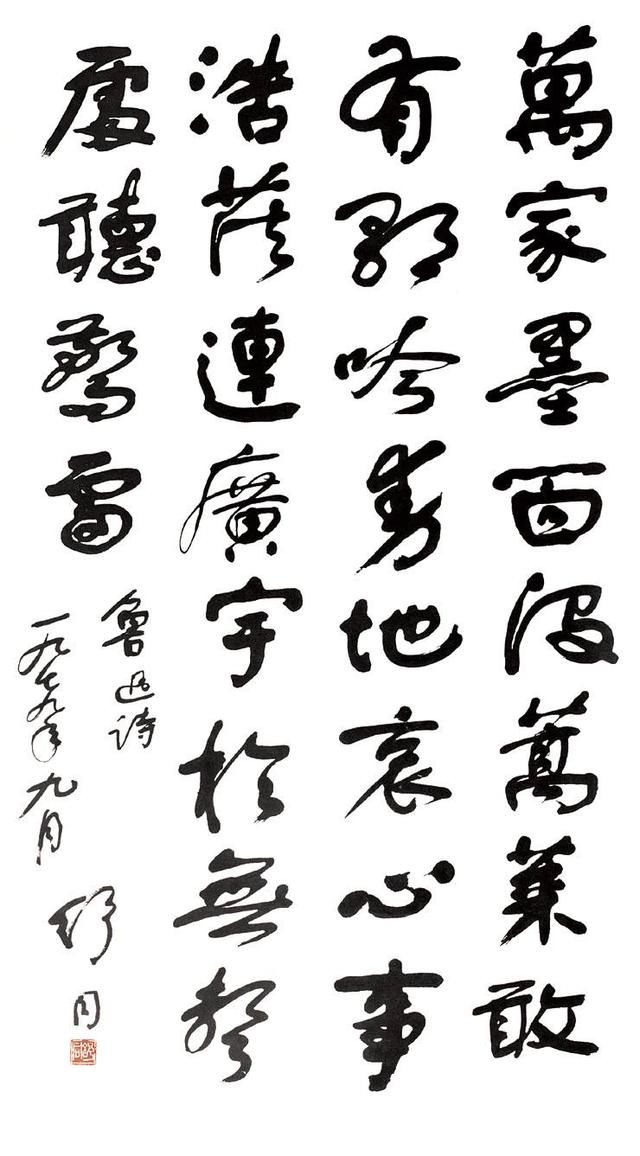 萬家墨面沒蒿萊敢
有歌吟動地哀心事
浩茫連廣宇於無聲
處聽驚雷
魯迅詩
一九七九年九月
舒同